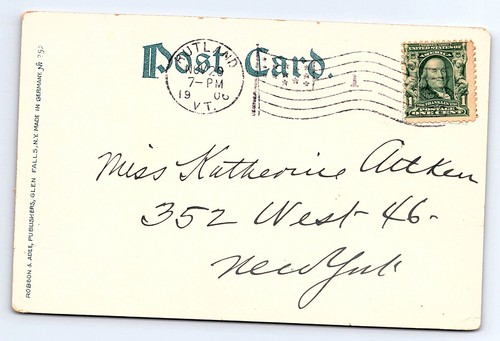 Post Card.
RUTLAND
NOV 29
7-PM
1906
VT.
1
UNITED STATES OF AMERICA
FRANKLIN
1 ONE CENT 1
Miss Katherine Aitken
352 West 46-
New York
ROBSON & ADEE, PUBLISHERS, GLEN FALLS, N.Y. MADE IN GERMANY. № 252